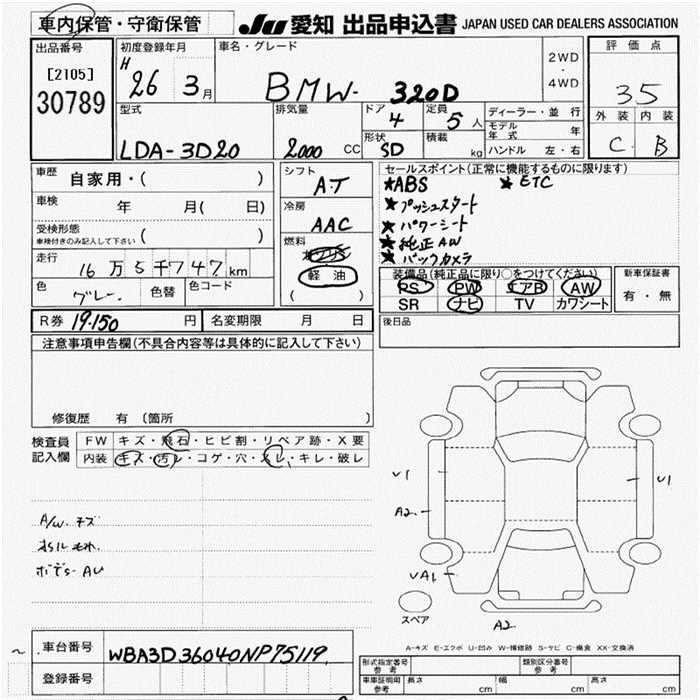 車内保管・守衛保管 JU 愛知 出品申込書 JAPAN USED CAR DEALERS ASSOCIATION
出品番号
[2105]
30789
初度登録年月
H 26 3月
車名・グレード
BMW 320D
2WD
・
4WD
評価点
3.5
外装 内装
C B
型式
LDA-3D20
排気量
2000 cc
ドア
4
定員
5 人
形状
SD
積載
kg
ディーラー・並行
モデル年式 年
ハンドル 左・右
車歴 自家用・( )
車検 年 月( 日)
受検形態
車検付きのみ記入して下さい ( )
走行 16万5千747km
色 グレー 色替 色コード
シフト
AT
冷房
AAC
燃料
ガソリン
軽油
( )
セールスポイント(正常に機能するものに限ります)
★ABS ★ETC
★プッシュスタート
★パワーシート
★純正AW
★バックカメラ
装備品(純正品に限り○をつけてください)
PS PW エアB AW
SR ナビ TV カワシート
新車保証書
有・無
R券 19.150 円 名変期限 月 日
後日品
注意事項申告欄(不具合内容等は具体的に記入して下さい)
修復歴 有 〔箇所 〕
検査員
記入欄
FW キズ・飛石・ヒビ割・リペア跡・X要
内装 キズ・汚レ・コゲ・穴・スレ・キレ・破レ
A/W キズ
オイルもれ
ボデー AU
U1
A2
U1
UA1
A2
スペア
A-キズ E-エクボ U-凹み W-補修跡 S-サビ C-腐食 XX-交換済
車台番号 WBA3D36040NP75119
登録番号
形式指定番号
参考
類別区分番号
参考
車庫証明用
参考
長さ cm 幅 cm 高さ cm